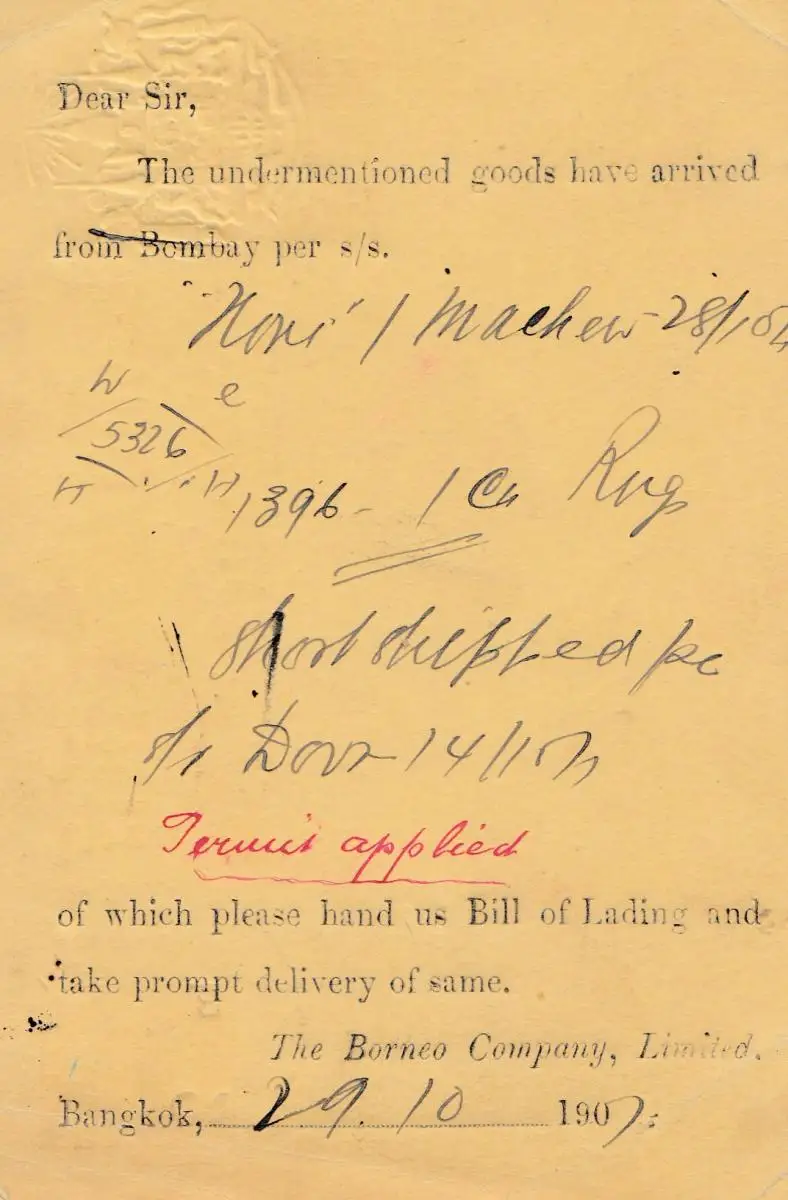 Dear Sir,
The undermentioned goods have arrived
from Bombay per s/s.
28/10/
W e
5326
H H 1396 - 1 Cs Rugs
Short shipped
Dovr 14/10/7
Permit applied
of which please hand us Bill of Lading and
take prompt delivery of same.
The Borneo Company, Limited.
Bangkok, 29.10 1907.